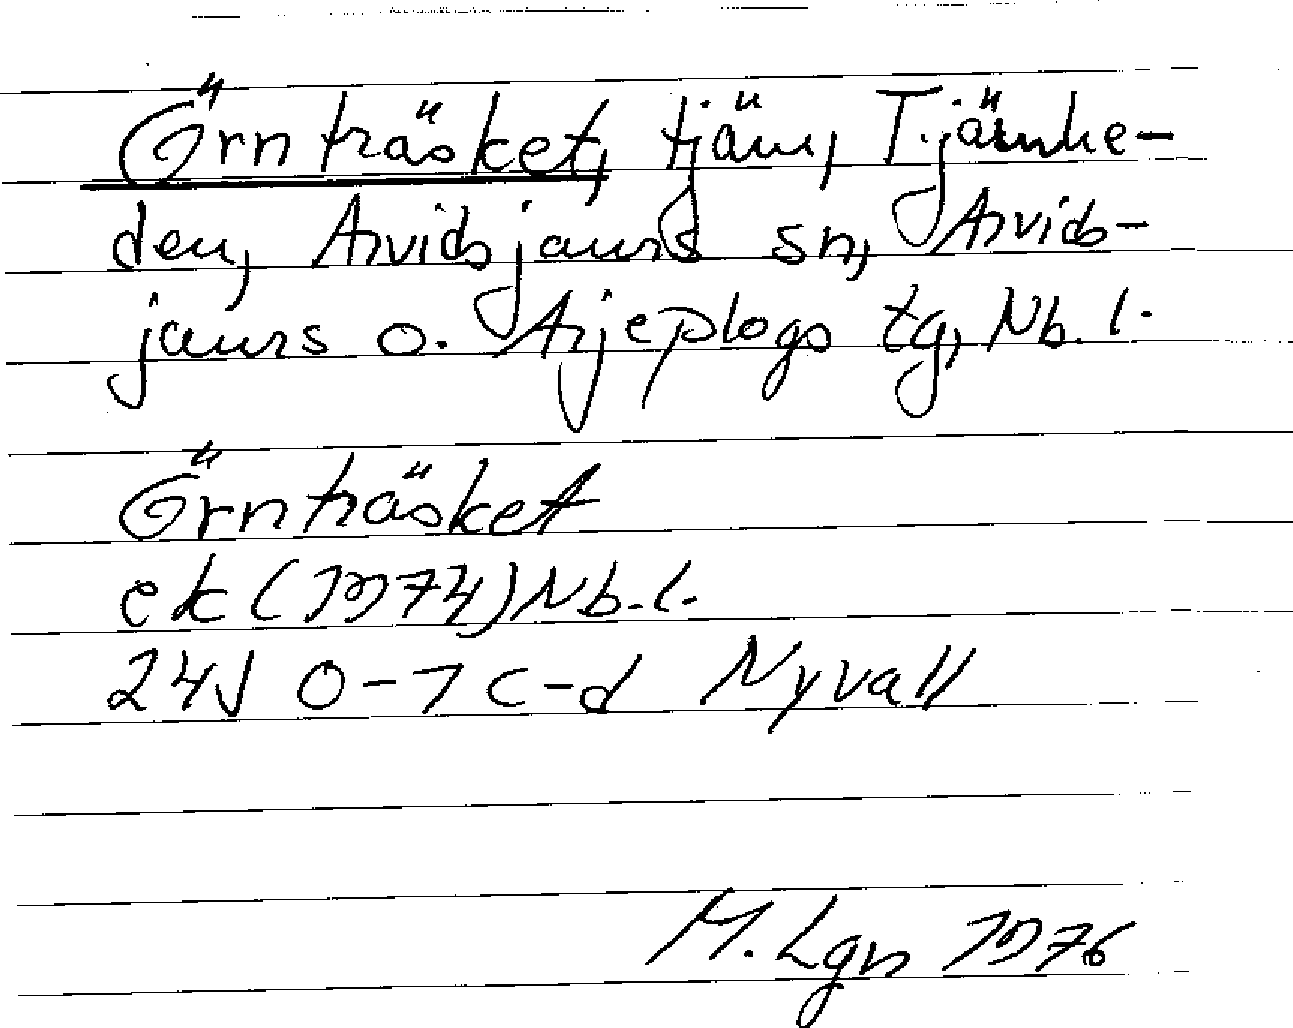 Örnträsket, tjärn, Tjärnhe-
den, Arvidsjaurs sn, Arvids-
jaurs o. Arjeplogs tg, Nb. l.
Örnträsket
ek (1974) Nb. l.
24J 0-1 c-d Nyvall
M. Lgn 1976